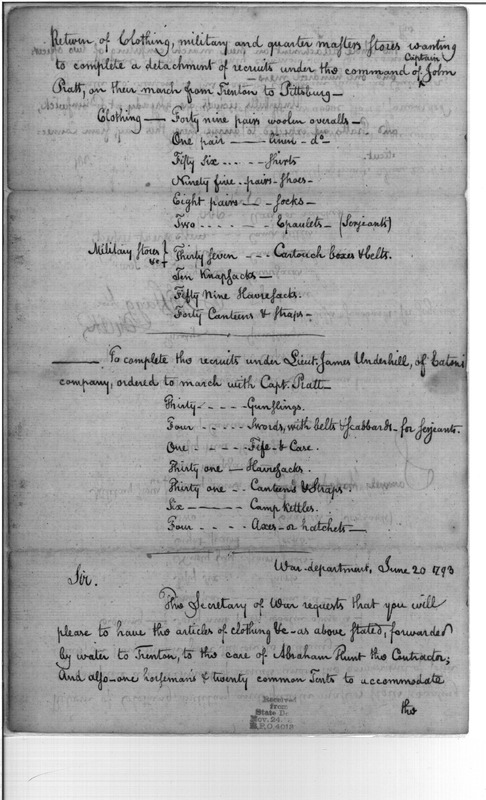 Return of Clothing, military and quarter masters stores wanting
to complete a detachment of recruits under the command of Captain John
Pratt, on their march from Trenton to Pittsburg—
Clothing— Forty nine pairs woolen overalls—
One pair —— linen - do-
Fifty Six - - - - Shirts
Ninety five - pairs - Shoes -
Eight pairs — - Socks -
Two - - - - - Epaulets - (Serjeants)
Military Stores &c } Thirty Seven - - - Cartouch boxes & belts.
Ten Knapsacks —
Fifty Nine Haversacks.
Forty Canteens & Straps -
—— To complete the recruits under Lieut. James Underhill, of Eaton's
company, ordered to march with Capt. Pratt—
Thirty - - - - Gunslings.
Four - - - - - Swords, with belts & Scabbards - for Serjeants.
One - - - - - Fife & Case.
Thirty one — Haversacks.
Thirty one - - Canteens & Straps.
Six ——— Camp Kettles.
Four - - - - Axes - or hatchets —
War-department, June 20 1793
Sir.
The Secretary of War requests that you will
please to have the articles of clothing &c - as above stated, forwarded
by water to Trenton, to the care of Abraham Hunt the Contractor;
And also - one horseman's & twenty common Tents to accommodate
the
Received
from
State De
Nov. 24.